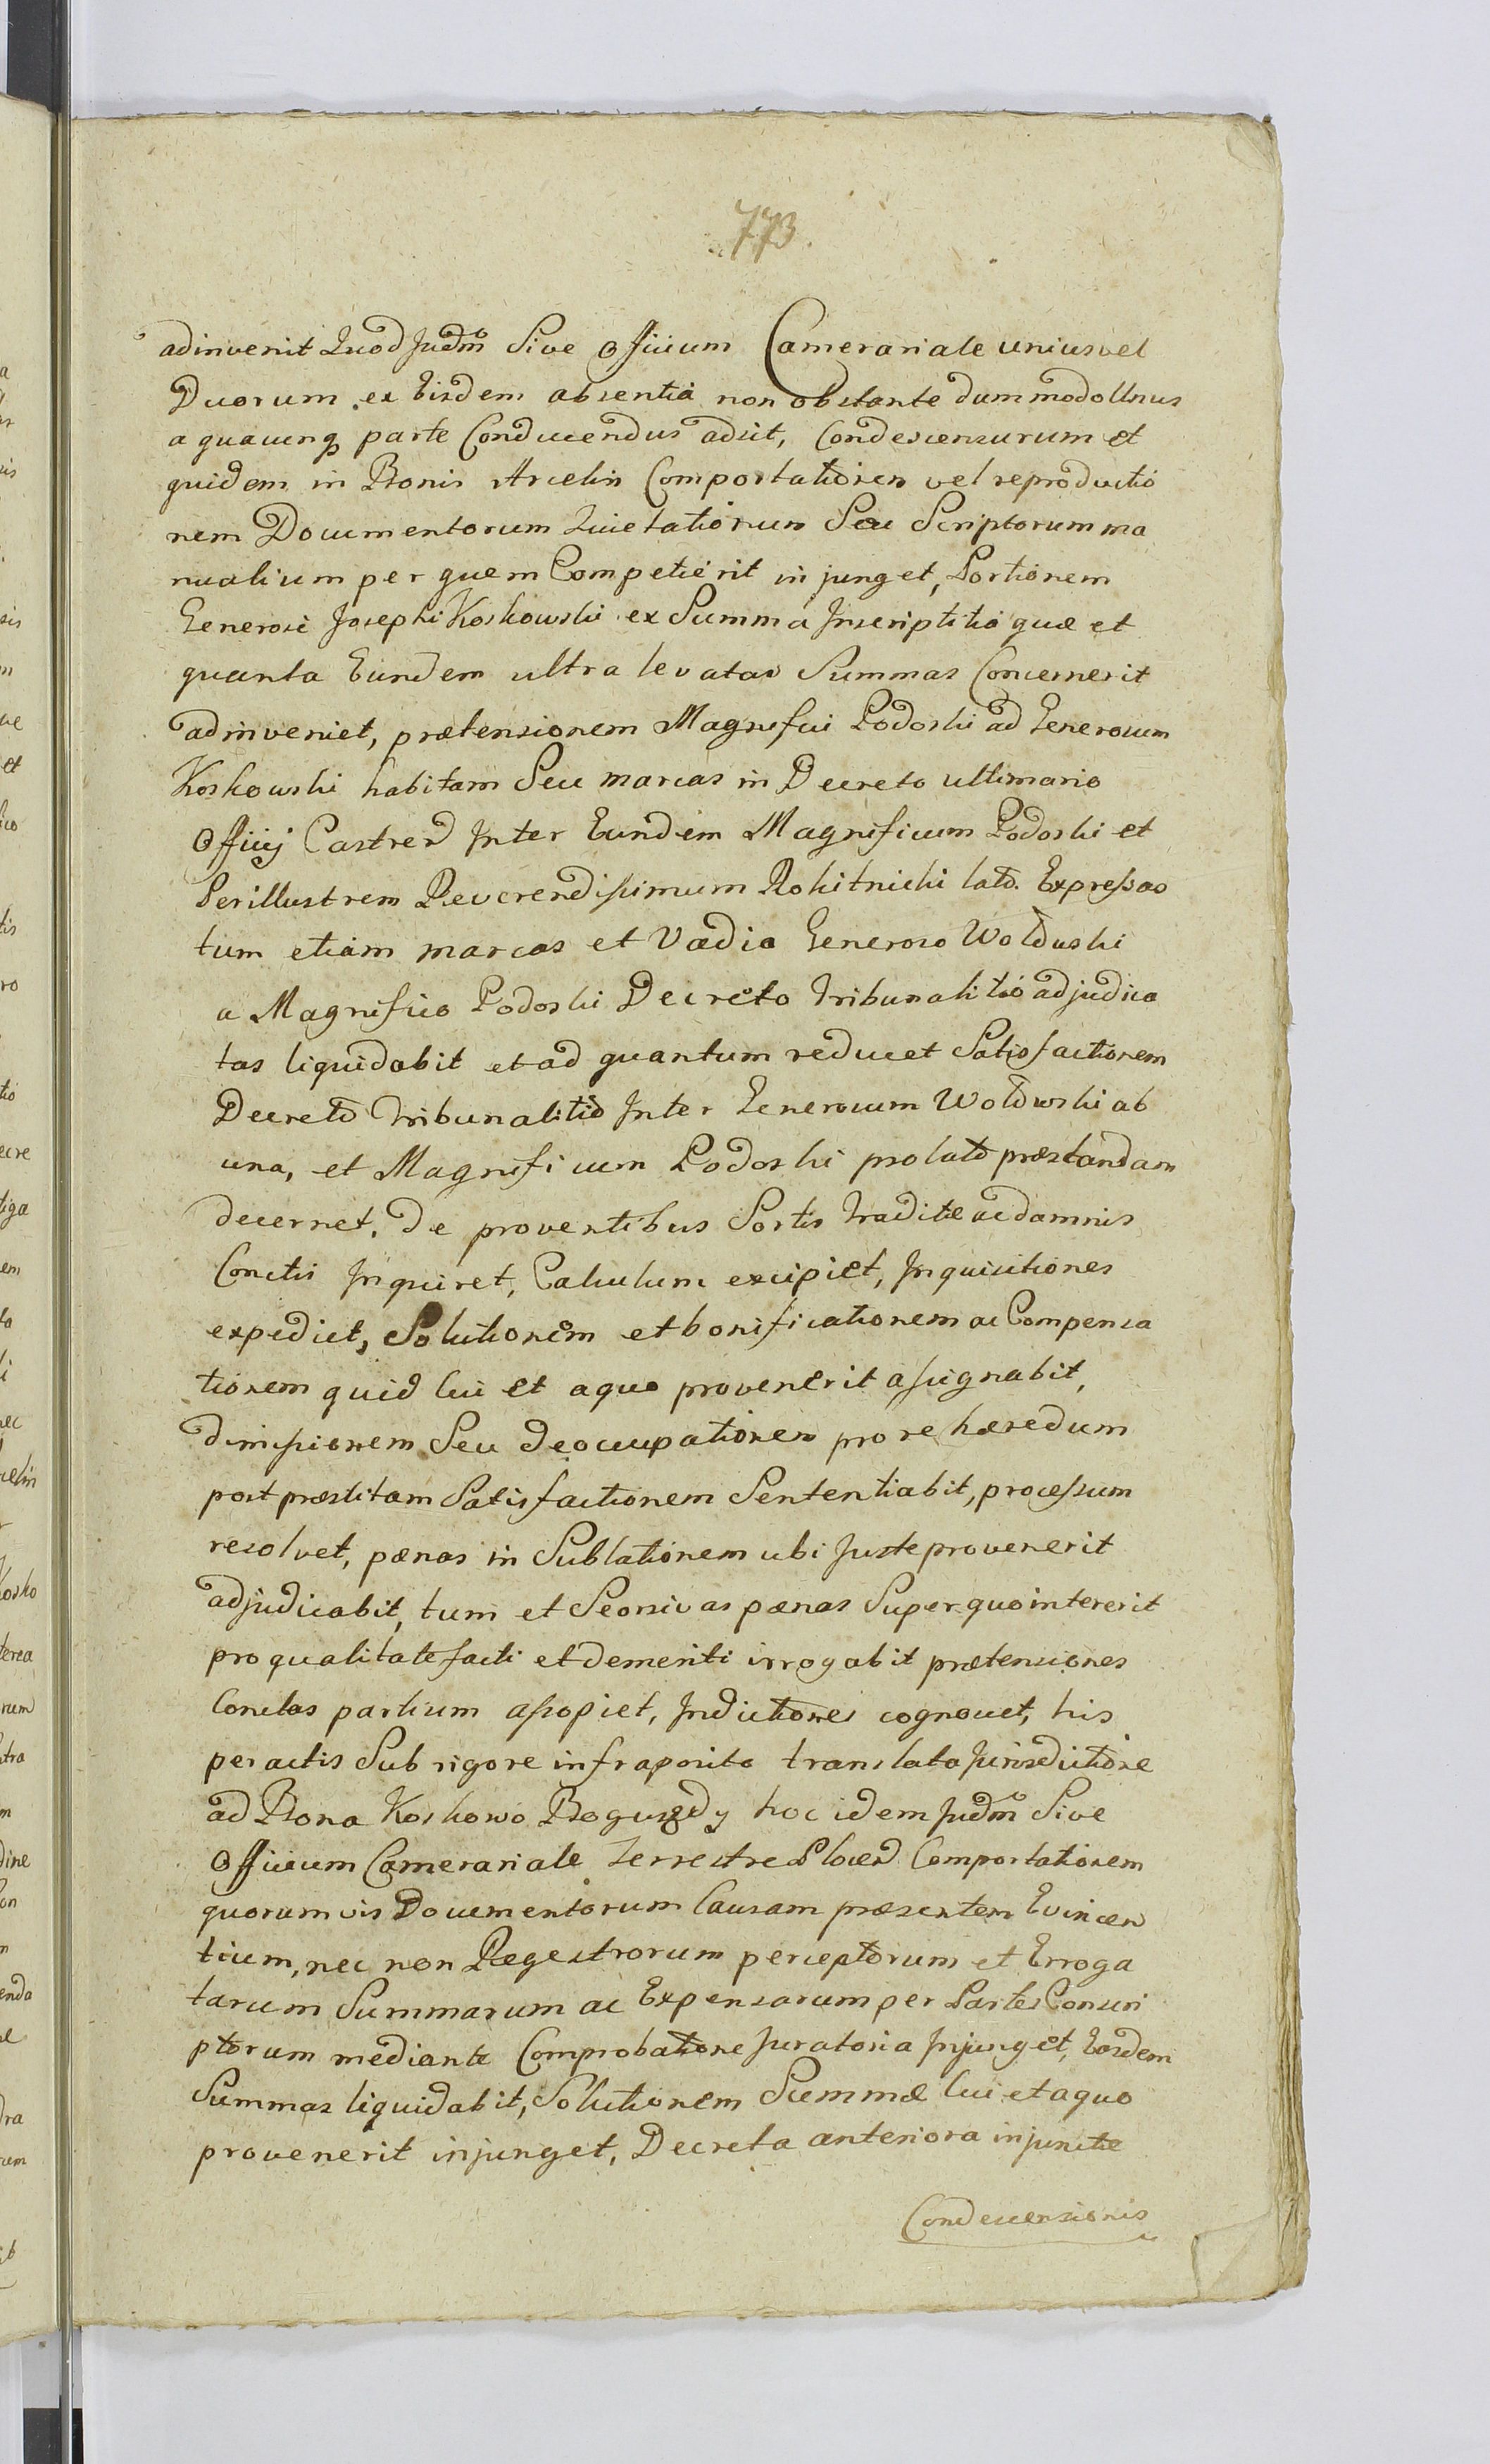 773.
adinvenit Quod Judm Sive Officium Camerariale unius vel
Duorum ex Eisdem absentia non obstante dummodo Unus
a quacunq parte Conducendus adsit, Condescensurum et
quidem in Bonis Arcelin Comportationem vel reproductio
nem Documentorum Quietationum Seu Scriptorum ma
nualium per quem Competierit injunget, Portionem
Generosi Josephi Koskowski ex Summa Inscriptitia quæ et
quanta Eundem ultra levatas Summas Concernerit
adinveniet, prætensionem Magnifici Podoski ad Generosum
Koskowski habitam Seu marcas in Decreto ultimario
Officij Castren Inter Eundem Magnificum Podoski et
Perillustrem Reverendissimum Rokitnicki lato Expressas
tum etiam marcas et Vadia Generoso Woldwski
a Magnifico Podoski Decreto Tribunalitio adjudica
tas liquidabit et ad quantum reducet Satisfactionem
Decreto Tribunalitio Inter Generosum Woldwski ab
una, et Magnificum Podoski prolato præstandam
decernet, de proventibus Sortis traditæ ac damnis
Conctis Inquiret, Calculum excipiet, Inquisitiones
expediet, Solutionem et bonificationem ac Compensa
tionem quid Cui et a quo provenerit assignabit,
dimissionem Seu deoccupationem pro re hæredum
post præstitam Satisfactionem Sententiabit, processum
resolvet, pænas in Sublationem ubi Juste provenerit
adjudicabit, tum et Seorsivas pænas Super quo intererit
pro qualitate facti et demeriti irrogabit prætensiones
Conctas partium assopiet, Indictiones cognoscet, his
peractis Sub rigore infraposito translata Jurisdictione
ad Bona Koskowo Boguszdy hoc idem Judm Sive
Officium Camerariale Terrestre Plocen Comportationem
quorumvis Documentorum Causam præsentem Evincen
tium, nec non Regestrorum perceptorum et Erroga
tarum Summarum ac Expensarum per Partes Conscri
ptorum mediante Comprobatione Juratoria Injunget, Easdem
Summas liquidabit, Solutionem Summæ Cui et a quo
provenerit injunget, Decreta anteriora injunctæ
Condescensionis